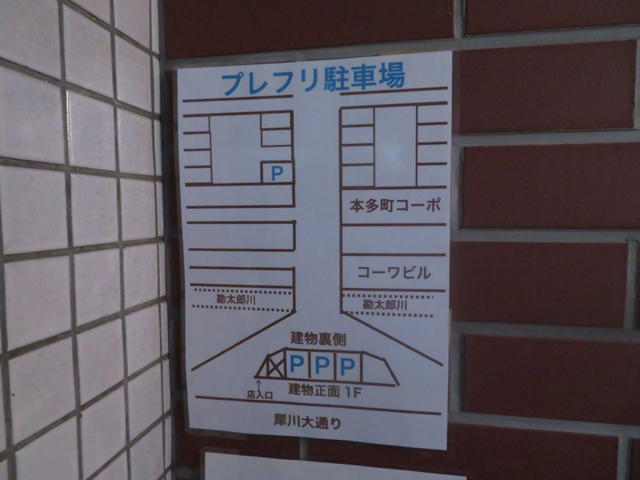 プレフリ駐車場
P
本多町コーポ
コーワビル
勘太郎川
勘太郎川
建物裏側
P P P
建物正面 1F
店入口
犀川大通り